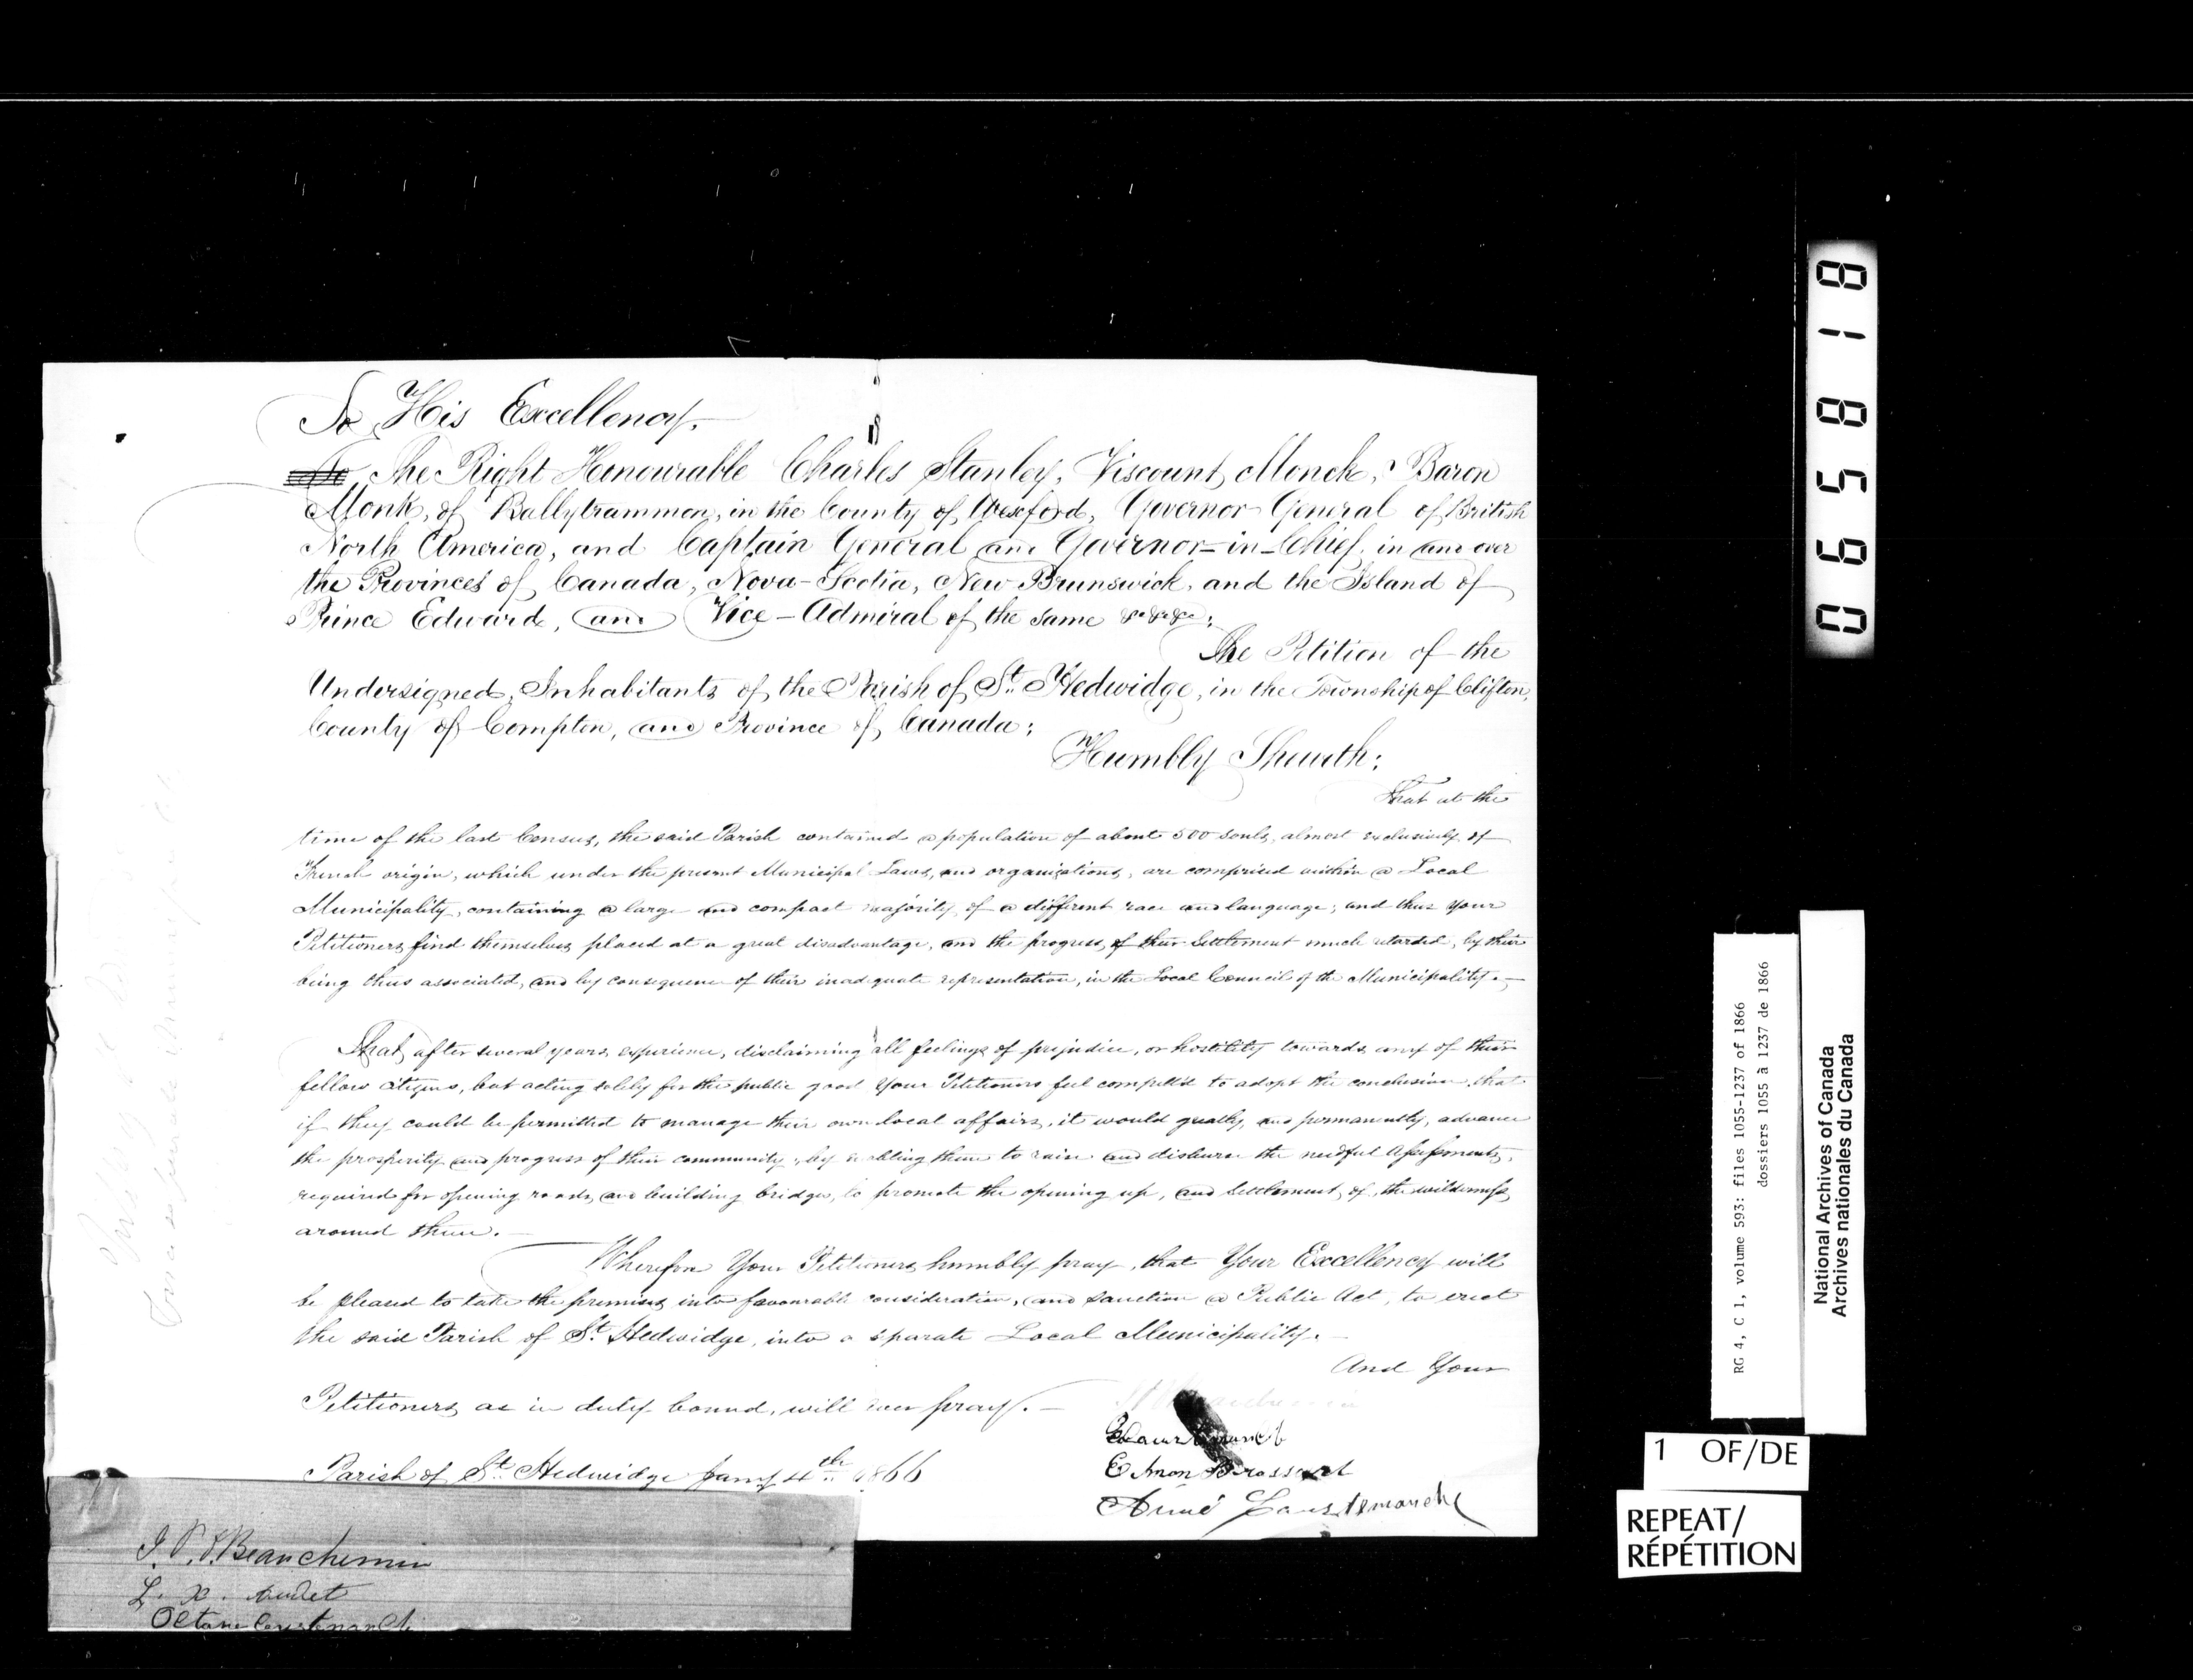 To His Excellency.
To The Right Honourable Charles Stanley, Viscount Monck, Baron
Monk, of Ballytrammon, in the County of Wexford, Governor General of British
North America, and Captain General and Governor-in-Chief, in and over
the Provinces of Canada, Nova-Scotia, New Brunswick, and the Island of
Prince Edward, and Vice-Admiral of the same &c. &c. &c.;
The Petition of the
Undersigned, Inhabitants of the Parish of St. Hedwidge, in the Township of Clifton,
County of Compton, and Province of Canada;
Humbly Sheweth;
That at the
time of the last Census, the said Parish contained a population of about 500 souls, almost exclusively of
French origin, which under the present Municipal Laws, and organizations, are comprised within a Local
Municipality, containing a large and compact majority of a different race and language; and thus Your
Petitioners find themselves placed at a great disadvantage, and the progress, of their Settlement much retarded, by their
being thus associated, and by consequence of their inadequate representation, in the Local Council of the Municipality.—
That, after several years experience, disclaiming all feelings of prejudice, or hostility towards any of their
fellow citizens, but acting solely for the public good Your Petitioners feel compell'd to adopt the conclusion, that
if they could be permitted to manage their own local affairs, it would greatly, and permanently, advance
the prosperity and progress of their community, by enabling them to raise and disburse the needful Assessments,
required for opening roads, and building bridges, to promote the opening up, and Settlement, of, the wilderness
around them.—
Wherefore Your Petitioners humbly pray, that Your Excellency will
be pleased to take the premises into favourable consideration, and sanction a Public Act, to erect
the said Parish of St. Hedwidge, into a separate Local Municipality.—
And Your
Petitioners as in duty bound, will ever pray.—
Parish of St. Hedwidge Jany 4th 1866
Brossard
Aimé
J. P. Beauchemin
L. X. Audet
Octave
065818
RG 4, C 1, volume 593: files 1055-1237 of 1866
dossiers 1055 à 1237 de 1866
National Archives of Canada
Archives nationales du Canada
1 OF/DE
REPEAT/
RÉPÉTITION